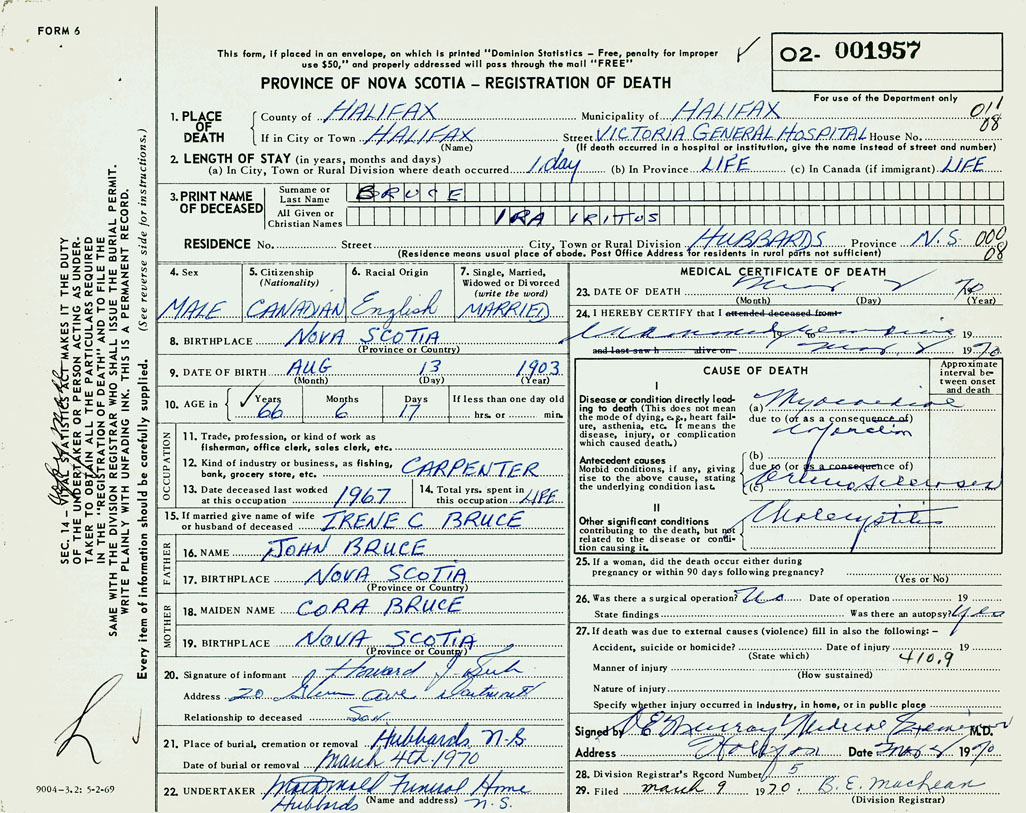 FORM 6
This form, if placed in an envelope, on which is printed "Dominion Statistics – Free, penalty for improper
use $50," and properly addressed will pass through the mail "FREE"
02- 001957
PROVINCE OF NOVA SCOTIA – REGISTRATION OF DEATH
For use of the Department only
1. PLACE OF DEATH
County of HALIFAX Municipality of HALIFAX 011
08
If in City or Town HALIFAX Street VICTORIA GENERAL HOSPITAL House No.
(Name) (If death occurred in a hospital or institution, give the name instead of street and number)
2. LENGTH OF STAY (in years, months and days)
(a) In City, Town or Rural Division where death occurred 1 day (b) In Province LIFE (c) In Canada (if immigrant) LIFE
3. PRINT NAME OF DECEASED
Surname or Last Name BRUCE
All Given or Christian Names IRA IRITUS
RESIDENCE No. Street City, Town or Rural Division HUBBARDS Province N.S. 000
08
(Residence means usual place of abode. Post Office Address for residents in rural parts not sufficient)
4. Sex MALE
5. Citizenship (Nationality) CANADIAN
6. Racial Origin English
7. Single, Married, Widowed or Divorced (write the word) MARRIED
8. BIRTHPLACE NOVA SCOTIA
(Province or Country)
9. DATE OF BIRTH AUG 13 1903
(Month) (Day) (Year)
10. AGE in Years Months Days If less than one day old
66 6 17 hrs. or min.
OCCUPATION
11. Trade, profession, or kind of work as
fisherman, office clerk, sales clerk, etc.
12. Kind of industry or business, as fishing,
bank, grocery store, etc. CARPENTER
13. Date deceased last worked at this occupation 1967
14. Total yrs. spent in this occupation LIFE
15. If married give name of wife
or husband of deceased IRENE C BRUCE
FATHER
16. NAME JOHN BRUCE
17. BIRTHPLACE NOVA SCOTIA
(Province or Country)
MOTHER
18. MAIDEN NAME CORA BRUCE
19. BIRTHPLACE NOVA SCOTIA
(Province or Country)
20. Signature of informant Howard J.
Address 20 Ave
Relationship to deceased Son
21. Place of burial, cremation or removal Hubbards N-S
Date of burial or removal March 4th 1970
22. UNDERTAKER Funeral Home
(Name and address) Hubbards N.S.
MEDICAL CERTIFICATE OF DEATH
23. DATE OF DEATH 70
(Month) (Day) (Year)
24. I HEREBY CERTIFY that I attended deceased from
19 to 19
and last saw h alive on 1970
CAUSE OF DEATH
Approximate interval between onset and death
I
Disease or condition directly leading
to death (This does not mean
the mode of dying, e.g., heart failure,
asthenia, etc. It means the
disease, injury, or complication
which caused death.)
(a) Myocardial
due to (or as a consequence of)
Infarction
Antecedent causes
Morbid conditions, if any, giving
rise to the above cause, stating
the underlying condition last.
(b)
due to (or as a consequence of)
(c)
II
Other significant conditions
contributing to the death, but not
related to the disease or condition
causing it.
Cholecystitis
25. If a woman, did the death occur either during
pregnancy or within 90 days following pregnancy?
(Yes or No)
26. Was there a surgical operation? No Date of operation 19
State findings Was there an autopsy? Yes
27. If death was due to external causes (violence) fill in also the following: –
Accident, suicide or homicide? Date of injury 19
(State which) 410.9
Manner of injury
(How sustained)
Nature of injury
Specify whether injury occurred in industry, in home, or in public place
Signed by D E Murray Medical Examiner M.D.
Address Halifax Date 1970
28. Division Registrar's Record Number 5
29. Filed march 9 1970. B. E. MacLean
(Division Registrar)
SEC. 14 – VITAL STATISTICS ACT MAKES IT THE DUTY
OF THE UNDERTAKER OR PERSON ACTING AS UNDER-
TAKER TO OBTAIN ALL THE PARTICULARS REQUIRED
IN THE "REGISTRATION OF DEATH" AND TO FILE THE
SAME WITH THE DIVISION REGISTRAR WHO SHALL ISSUE THE BURIAL PERMIT.
WRITE PLAINLY WITH UNFADING INK. THIS IS A PERMANENT RECORD.
Every item of information should be carefully supplied. (See reverse side for instructions.)
9004-3.2: 5-2-69